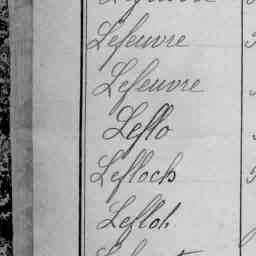 Lefeuvre
Lefeuvre
Leflo
Lefloch
Lefloh